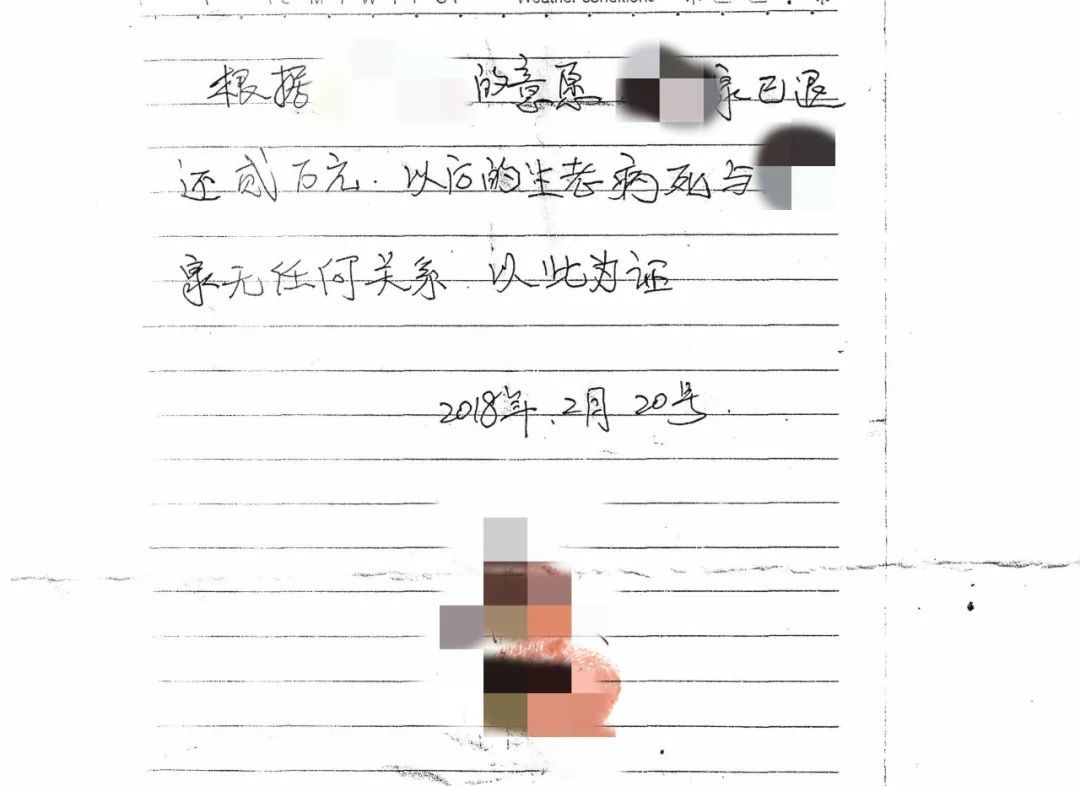 Weather conditions
根据 的意愿 家已退
还贰万元.以后的生老病死与
家无任何关系.以此为证
2018年.2月20号.